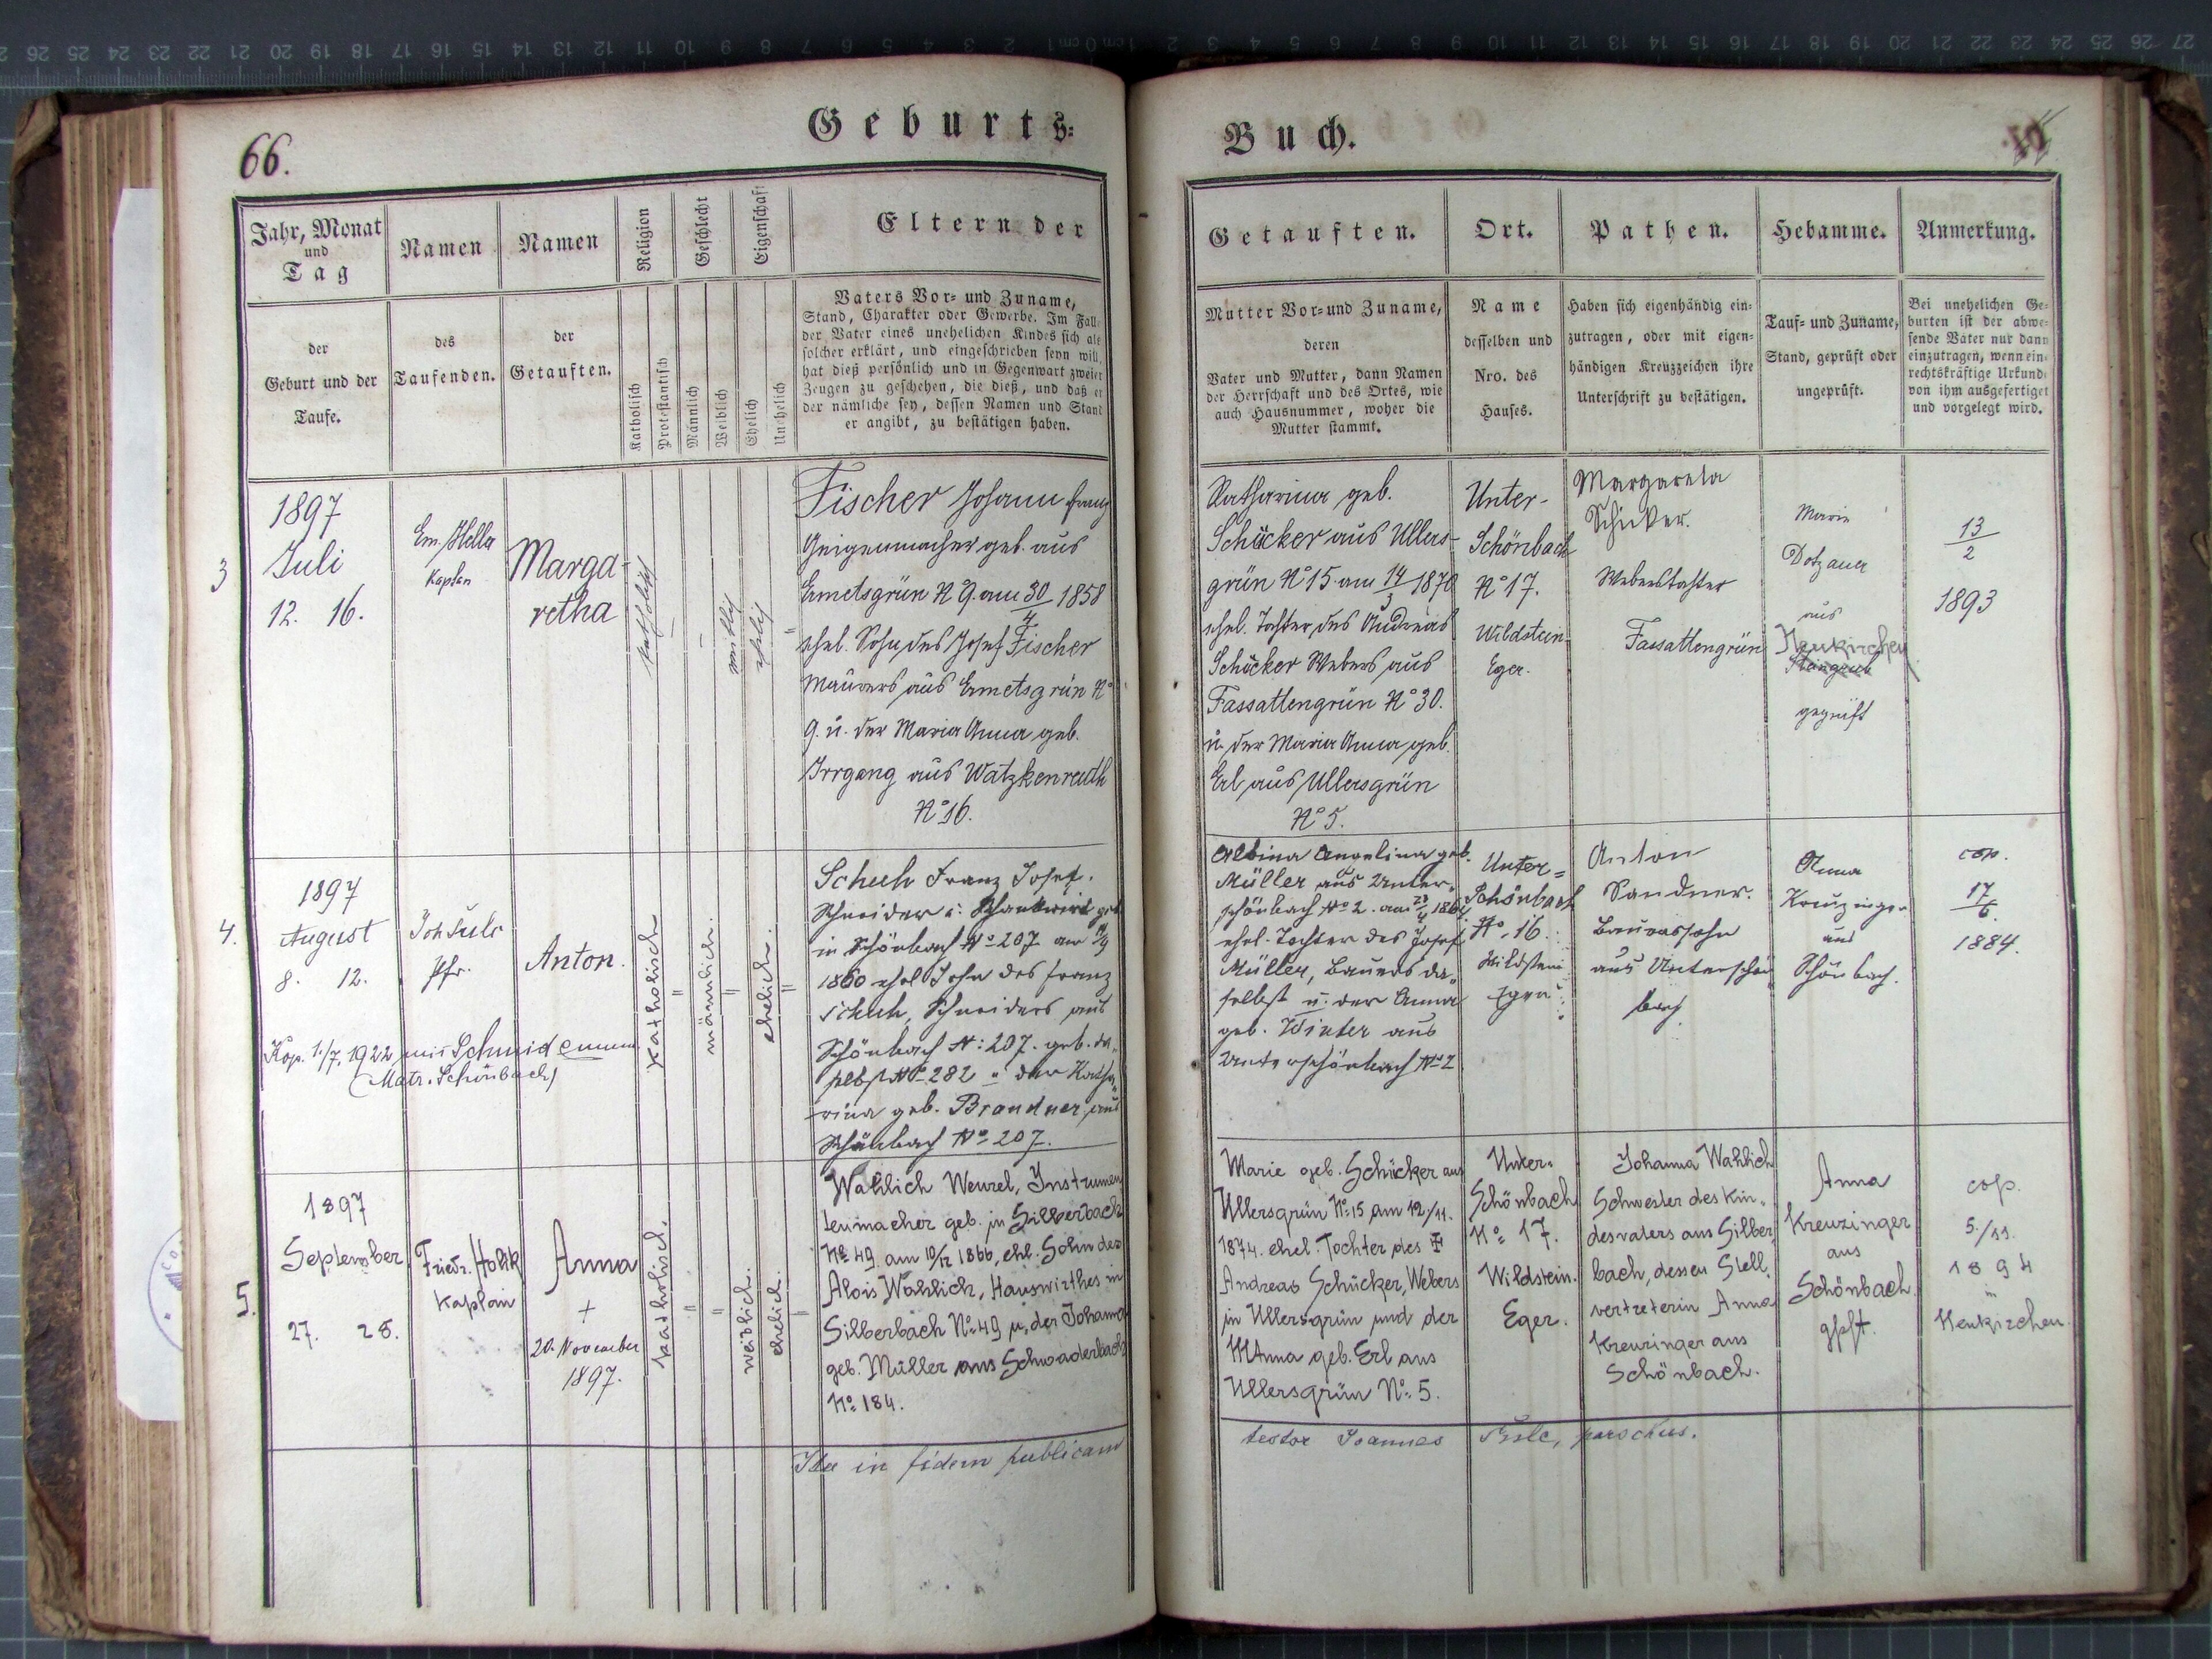 66.
Geburts=
Buch.
Jahr, Monat
und
Tag
der
Geburt und der
Taufe.
Namen
des
Taufenden.
Namen
der
Getauften.
Religion
Katholisch
Protestantisch
Geschlecht
Männlich
Weiblich
Eigenschaft
Ehelich
Unehelich
Eltern der
Vaters Vor= und Zuname,
Stand, Charakter oder Gewerbe. Im Fall
der Vater eines unehelichen Kindes sich als
solcher erklärt, und eingeschrieben seyn will,
hat dieß persönlich und in Gegenwart zweier
Zeugen zu geschehen, die dieß, und daß er
der nämliche sey, dessen Namen und Stand
er angibt, zu bestätigen haben.
Getauften.
Mutter Vor= und Zuname,
deren
Vater und Mutter, dann Namen
der Herrschaft und des Ortes, wie
auch Hausnummer, woher die
Mutter stammt.
Ort.
Name
desselben und
Nro. des
Hauses.
Pathen.
Haben sich eigenhändig ein=
zutragen, oder mit eigen=
händigen Kreuzzeichen ihre
Unterschrift zu bestätigen.
Hebamme.
Tauf= und Zuname,
Stand, geprüft oder
ungeprüft.
Anmerkung.
Bei unehelichen Ge=
burten ist der abwe=
sende Vater nur dann
einzutragen, wenn ein
rechtskräftige Urkund
von ihm ausgefertiget
und vorgelegt wird.
3
1897
Juli
12. 16.
Em. Heller
Kaplan
Marga-
retha
katholisch
weiblich
ehelich
Fischer Johann Franz
Geigenmacher geb. aus
Ermetsgrün N° 9. am 30/4 1858
ehel. Sohn des Josef Fischer
Maurers aus Ermetsgrün N°
9. u. der Maria Anna geb.
Irrgang aus Watzkenreuth
N° 16.
Katharina geb.
Schücker aus Ullers-
grün N° 15 am 14/3 1870
ehel. Tochter des Andreas
Schücker Webers aus
Fassattengrün N° 30.
u. der Maria Anna geb.
Erl aus Ullersgrün
N° 5.
Unter-
Schönbach
N° 17.
Wildstein
Eger.
Margareta
Schicker.
Weberstochter
Fassattengrün
Marie
Dotzauer
aus
Neukirchen
geprüft
13/2
1893
4.
1897
August
8. 12.
Joh Šulc
Pfr.
Anton.
Kop. 1./7. 1922 mit Schmid
(Matr. Schönbach)
katholisch
männlich.
ehelich.
Schuh Franz Josef.
Schneider u. Schankwirt geb
in Schönbach N° 207 am
1860 ehel Sohn des Franz
Schuh, Schneiders aus
Schönbach N: 207. geb. da-
selbst N° 282 u der Katha-
rina geb. Brandner aus
Schönbach N° 207.
Albina Angelina geb.
Müller aus Unter-
schönbach N° 2. am
ehel. Tochter des Josef
Müller, Bauers da-
selbst u. der Anna
geb. Winter aus
Unterschönbach N° 2
Unter=
Schönbach
N°. 16.
Wildstein
Eger.
Anton
Sandner.
Bauerssohn
aus Unterschön
bach
Anna
Kreuzinger
aus
Schönbach.
cop.
17/6.
1884.
5.
1897
September
27. 28.
Friedr. Holik
Kaplan
Anna
+
20. November
1897.
katholisch.
weiblich.
ehelich.
Wahlich Wenzel, Instrumen
tenmacher geb. in Silberbach
N° 49 am 10/12 1866, ehl. Sohn des
Alois Wahlich, Hauswirthes in
Silberbach N° 49 u. der Johanna
geb. Müller aus Schwaderbach
N° 184.
Marie geb. Schücker aus
Ullersgrün N° 15 am 12./11.
1874. ehel. Tochter des
Andreas Schücker, Webers
in Ullersgrün und der
MAnna geb. Erl aus
Ullersgrün N° 5.
Unter-
Schönbach
N° 17.
Wildstein.
Eger.
Johanna Wahlich
Schwester des Kin-
desvaters aus Silber
bach, dessen Stell-
vertreterin Anna
Kreuzinger aus
Schönbach.
Anna
Kreuzinger
aus
Schönbach
gpft.
cop.
5./11.
1894
in
Neukirchen
Ita in fidem publicam
testor Joannes Šulc, parochus.